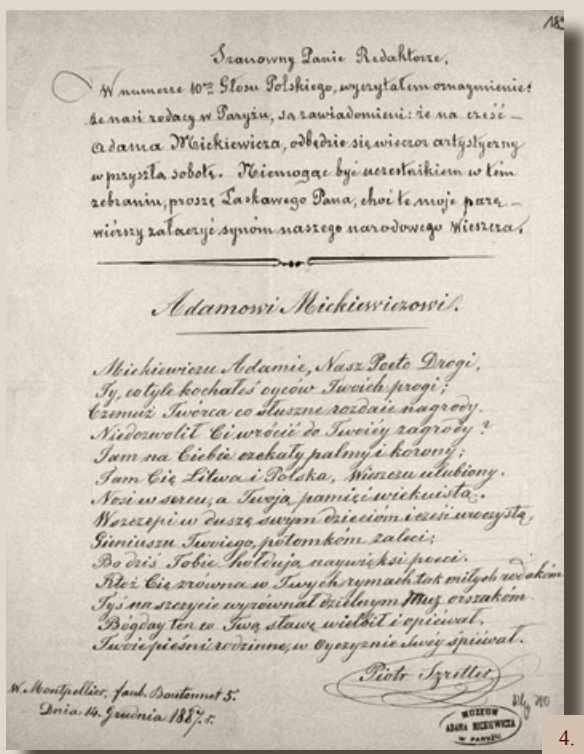 Szanowny Panie Redaktorze,
W numerze 10ym Głosu Polskiego, wyczytałem oznaymienie:
że nasi rodacy w Paryżu, są zawiadomieni: że na cześć –
Adama Mickiewicza, odbędzie się wieczor artystyczny
w przyszłą sobotę. Niemogąc być uczestnikiem w tém
zebraniu, proszę Łaskawego Pana, choć te moje parę –
wiérszy załączyć synóm naszego narodowego Wieszcza.
Adamowi Mickiewiczowi.
Mickiewiczu Adamie, Nasz Poeto Drogi,
Ty, co tyle kochałeś oyców Twoich progi;
Czemuż Twórca co słuszne rozdaie nagrody.
Niedozwolił Ci wrócić do Twoiéy zagrody?
Tam na Ciebie czekały palmy i korony;
Tam Cię Litwa i Polska, Wieszczu ulubiony.
Nosi w sercu, a Twoją pamięć wiekuistą.
Wszczepi w duszę swym dziecióm i cześć uroczystą,
Gieniuszu Twoiego, potomkóm zaleci;
Bo dziś Tobie hołdują naywięksi poeci.
Któż Cię zrówna w Twych rymach tak miłych rodakóm
Tyś na szczycie wyrównał dzielnym Muz orszakóm
Bógday ten co Twą sławę wielbił i opiéwał.
Twoie pieśni rodzinne, w Oyczyznie Swéy śpiéwał.
Piotr Szretter
W Montpellier, faub. Boutonnet 5.
Dnia 14. Grudnia 1887. r.
MUZEUM
ADAMA MICKIEWICZA
W PARYŻU
4.